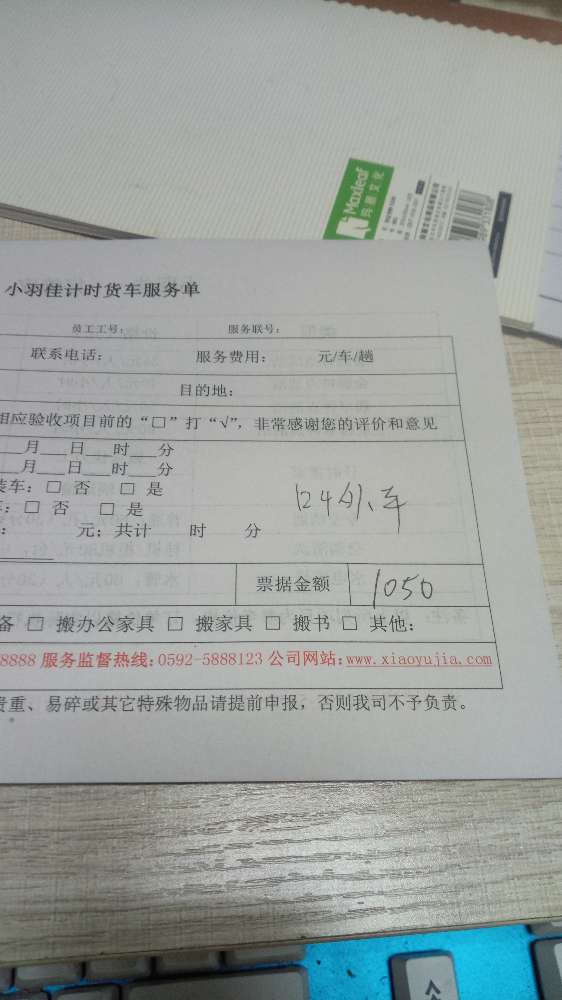 Maxleaf
玛雅文化
小羽佳计时货车服务单
员工工号: 服务联号:
联系电话: 服务费用: 元/车/趟
目的地:
相应验收项目前的“□”打“√”,非常感谢您的评价和意见
___月___日___时___分
___月___日___时___分
装车:□ 否 □ 是
:□ 否 □ 是
元;共计 时 分
票据金额 1050
备 □ 搬办公家具 □ 搬家具 □ 搬书 □ 其他:
8888 服务监督热线:0592-5888123 公司网站:www.xiaoyujia.com
贵重、易碎或其它特殊物品请提前申报,否则我司不予负责。